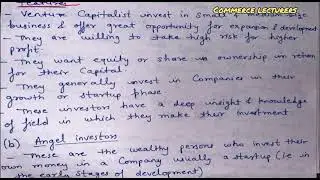 Features
COMMERCE LECTUREES
Venture Capitalist invest in Small & medium size
business & offer great opportunity for expansion & development
- They are willing to take high risk for higher
profit
- They want equity or share us ownership in return
for their Capital
- They generally invest in Companies in their
growth or startup phase
- These investors have a deep insight & knowledge
of field in which they make their investment
(b) Angel investors
- These are the wealthy persons who invest their
own money in a Company usually a startup (ie in
the early stages of development)